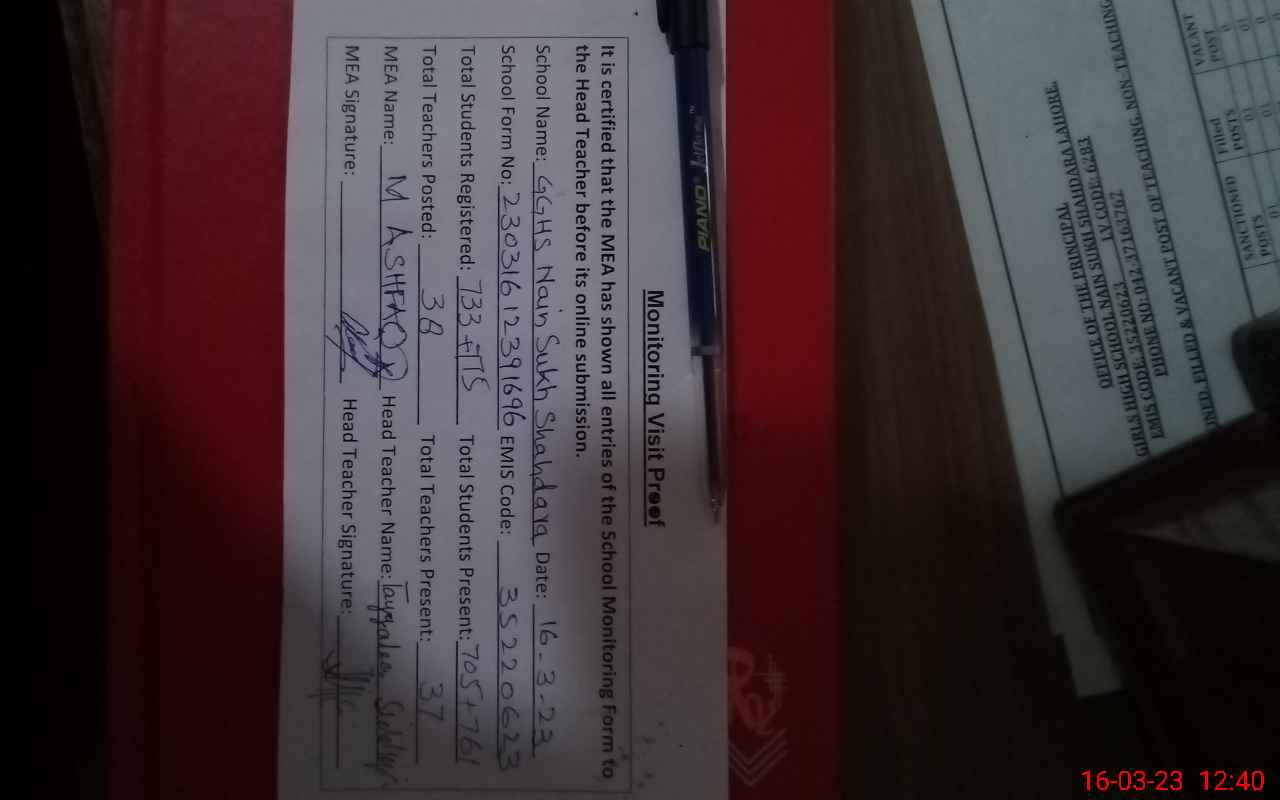 Monitoring Visit Proof
It is certified that the MEA has shown all entries of the School Monitoring Form to
the Head Teacher before its online submission.
School Name: GGHS Nain Sukh Shahdara Date: 16-3-23
School Form No: 23031612391696 EMIS Code: 35220623
Total Students Registered: 733+775 Total Students Present: 705+761
Total Teachers Posted: 38 Total Teachers Present: 37
MEA Name: M ASHFAQ Head Teacher Name: Tayyaba
MEA Signature: Head Teacher Signature:
PIANO
OFFICE OF THE PRINCIPAL
GIRLS HIGH SCHOOL NAIN SUKH SHAHDARA LAHORE
EMIS CODE: 35220623 LV.CODE: 6283
PHONE NO: 042-37146767
FILLED & VACANT POST OF TEACHING NON- TEACHING
SANCTIONED POSTS
Filled POSTS
VACANT POST
16-03-23 12:40